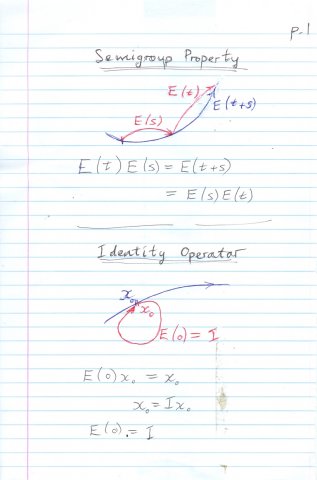 p.1
Semigroup Property
E(t)
E(t+s)
E(s)
E(t) E(s) = E(t+s)
= E(s) E(t)
Identity Operator
x₀
x₀
E(0) = I
E(0) x₀ = x₀
x₀ = I x₀
E(0) = I